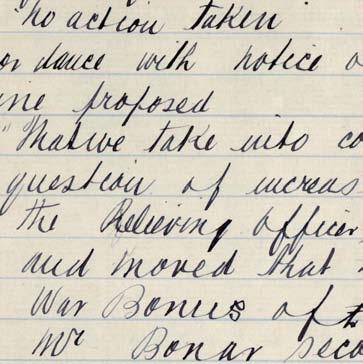 no action taken
ordance with notice o
ine proposed
"That we take into co
question of increas
the Relieving Officer
and moved that
War Bonus of th
Mr Bonar seco